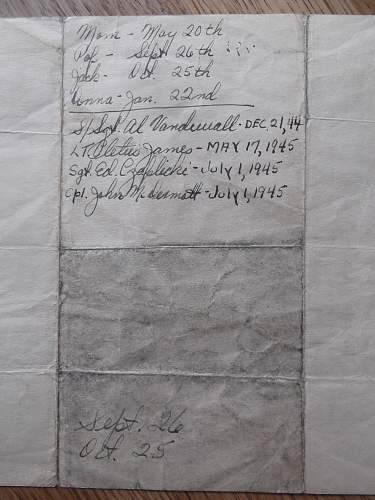 Mom - May 20th
Pop - Sept. 26th
Jack - Oct. 25th
Anna - Jan. 22nd
S/Sgt. Al Vandewall - DEC. 21, 44
LT. Cletus James - MAY 17, 1945
Sgt. Ed. Czaplicki - July 1, 1945
Cpl. John McDermott - July 1, 1945
Sept. 26
Oct. 25